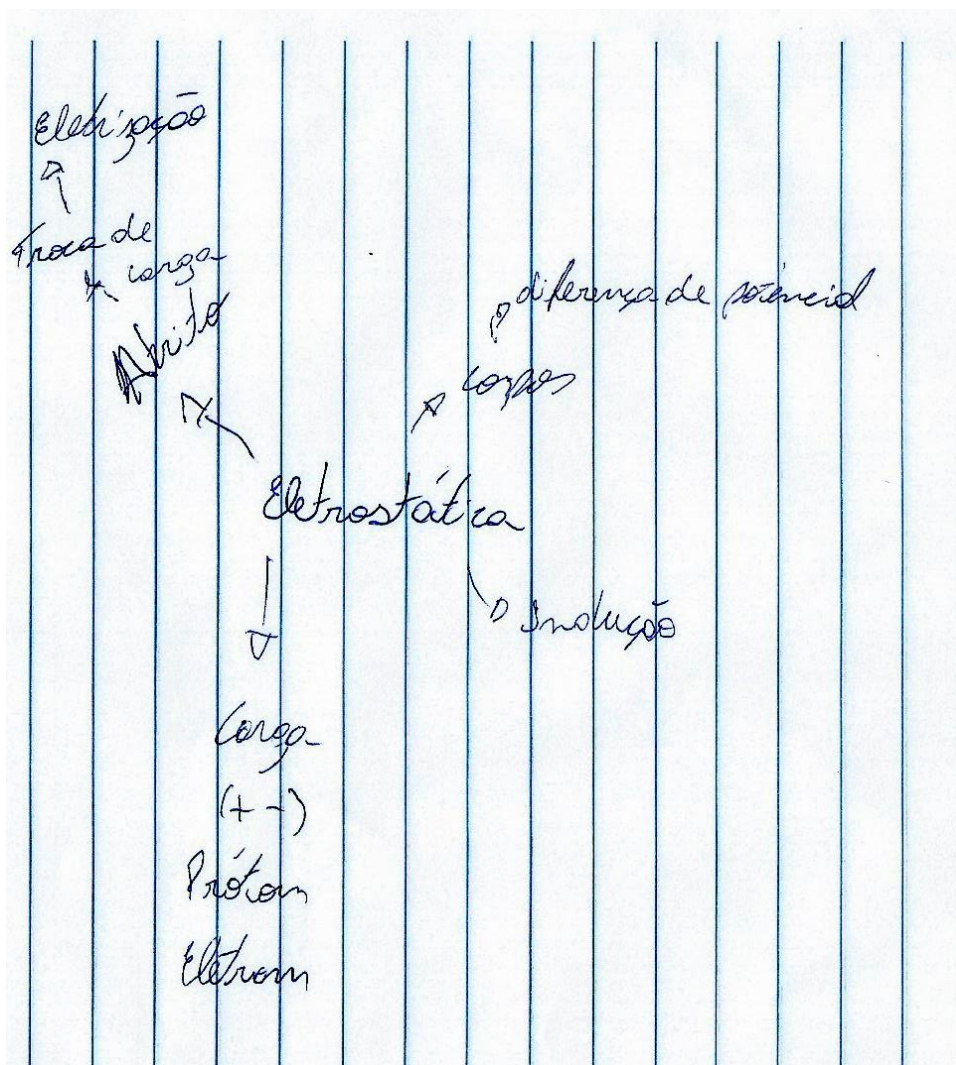 Eletrização
Troca de
carga
Atrito
diferença de potêncial
corpos
Eletrostática
Indução
Carga
(+ -)
Prótom
Elétrom